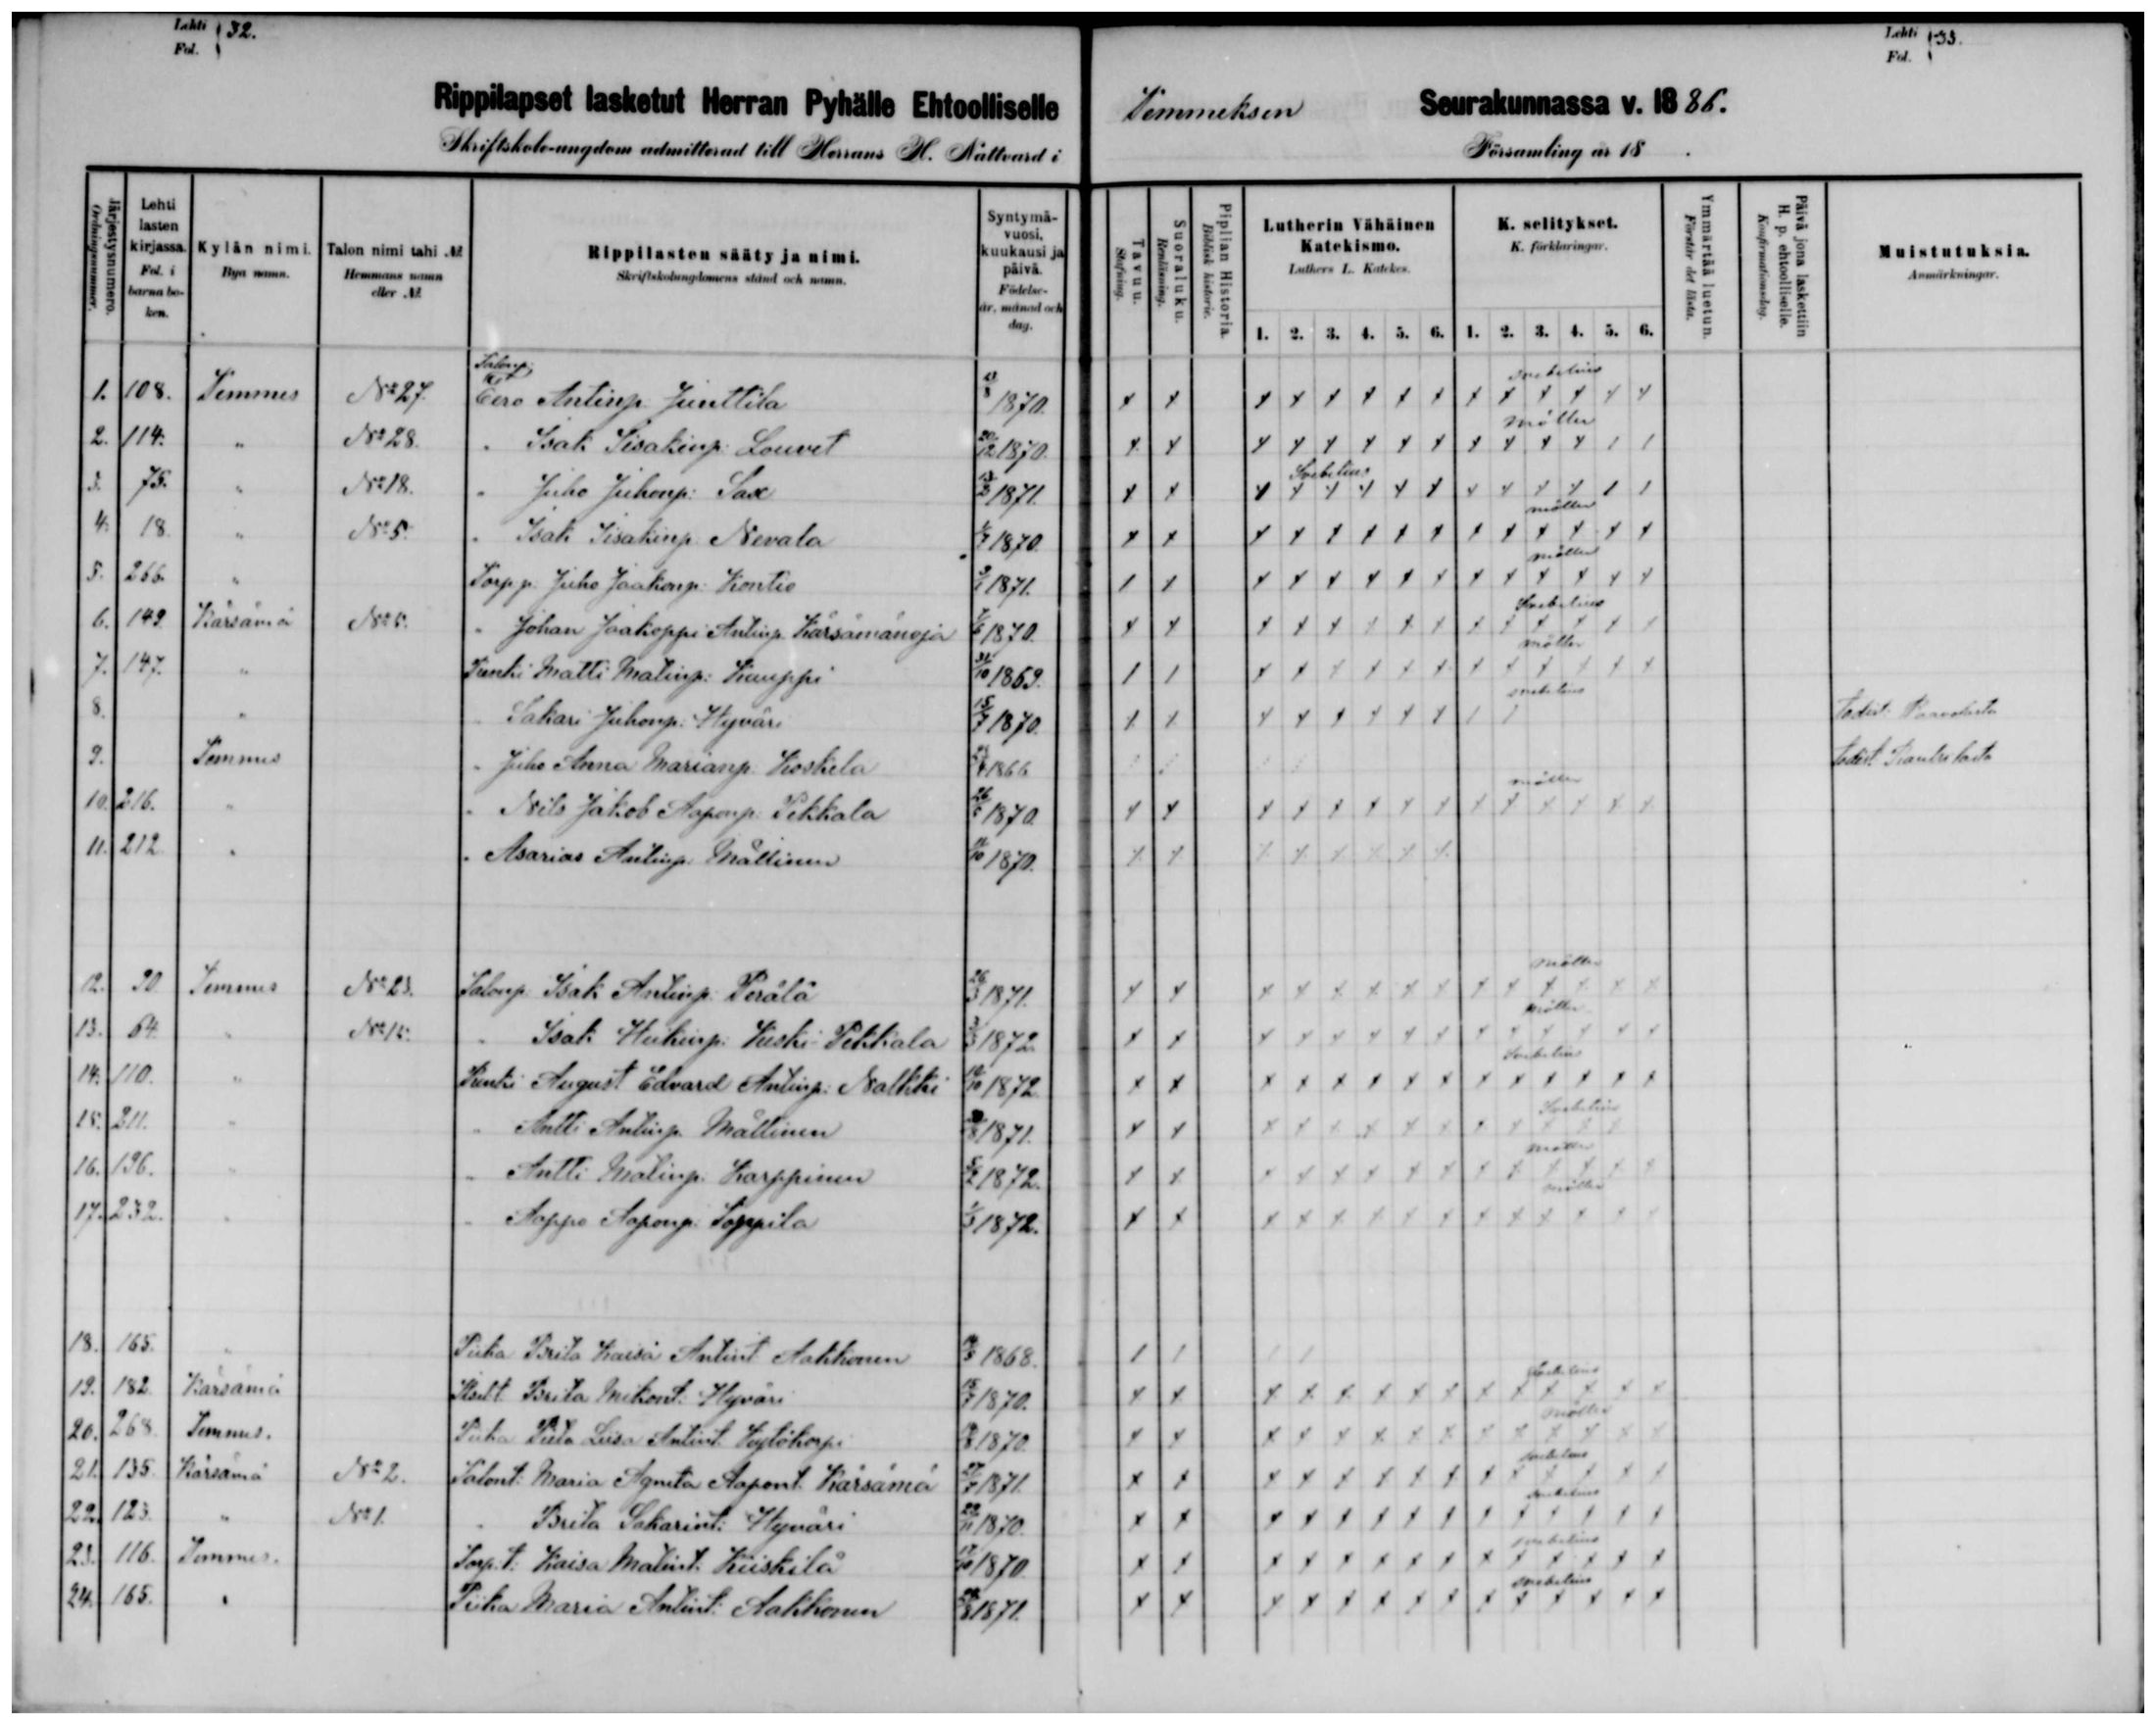 Lehti Fol. 32.
Lehti Fol. 33.
Rippilapset lasketut Herran Pyhälle Ehtoolliselle Temmeksen Seurakunnassa v. 1886.
Skriftskole-ungdom admitterad till Herrans H. Nattvard i Församling år 18 .
Järjestysnumero. Ordningsnummer.
Lehti lasten kirjassa. Fol. i barnaboken.
Kylän nimi. Bya namn.
Talon nimi tahi № Hemmans namn eller №
Rippilasten sääty ja nimi. Skriftskolungdomens stånd och namn.
Syntymä-vuosi, kuukausi ja päivä. Födelse-år, månad och dag.
Tavuu. Stafning.
Suoraluku. Renläsning.
Piplian Historia. Biblisk historie.
Lutherin Vähäinen Katekismo. Luthers L. Katekes.
K. selitykset. K. förklaringar.
Ymmärtää luetun. Förstår det lästa.
Päivä jona laskettiin H. p. ehtoolliselle. Konfirmationsdag.
Muistutuksia. Anmärkningar.
1. 2. 3. 4. 5. 6. 1. 2. 3. 4. 5. 6.
1. 108. Temmes No 27. Talonp. Eero Antinp. Junttila 1870. Svebelius
2. 114. " No 28. " Isak Iisakinp. Louvet 20/12 1870. Möller
3. 75. " No 18. " Juho Juhonp. Sax 1871. Svebelius
4. 18. " No 5. " Isak Iisakinp. Nevala 1870. Möller
5. 266. " Torpp. Juho Jaakonp. Kontio 1871. Möller
6. 149. Kärsämä No 5. " Johan Jaakoppi Antinp. Kärsämänoja 1870. Svebelius
7. 147. " Renki Matti Matinp. Kauppi 31/10 1869. Möller
8. " " Sakari Juhonp. Hyväri 15/7 1870. Svebelius Todist. Paavolasta
9. Temmes " Juho Anna Marianp. Koskela 1866 Todist.
10. 216. " " Nils Jakob Aaponp. Pekkala 1870. Möller
11. 212. " " Asarias Antinp. Mällinen 1870.
12. 90 Temmes No 23. Talonp. Isak Antinp. Perälä 26/3 1871. Möller
13. 64. " No 15. " Isak Heikinp. Keski-Pekkala 1872. Möller
14. 110. " Renki August Edvard Antinp. Nalkki 1872. Svebelius
15. 211. " " Antti Antinp. Mällinen 1871. Svebelius
16. 196. " " Antti Matinp. Karppinen 1872. Möller
17. 232. " " Aappo Aaponp. Loppila 1872. Möller
18. 165. " Piika Brita Kaisa Antint. Aakkonen 1868.
19. 182. Kärsämä Brita Mikont. Hyväri 15/7 1870. Svebelius
20. 268. Temmes. Piika Liisa Antint. Kylökorpi 1870. Möller
21. 135. Kärsämä No 2. Talont. Maria Agneta Aapont. Kärsämä 27/7 1871. Svebelius
22. 123. " No 1. " Brita Sakarint. Hyväri 22/11 1870. Svebelius
23. 116. Temmes. Torp. t. Kaisa Matint. Kiiskilä 17/10 1870. Svebelius
24. 165. " Piika Maria Antint. Aakkonen 1871. Svebelius